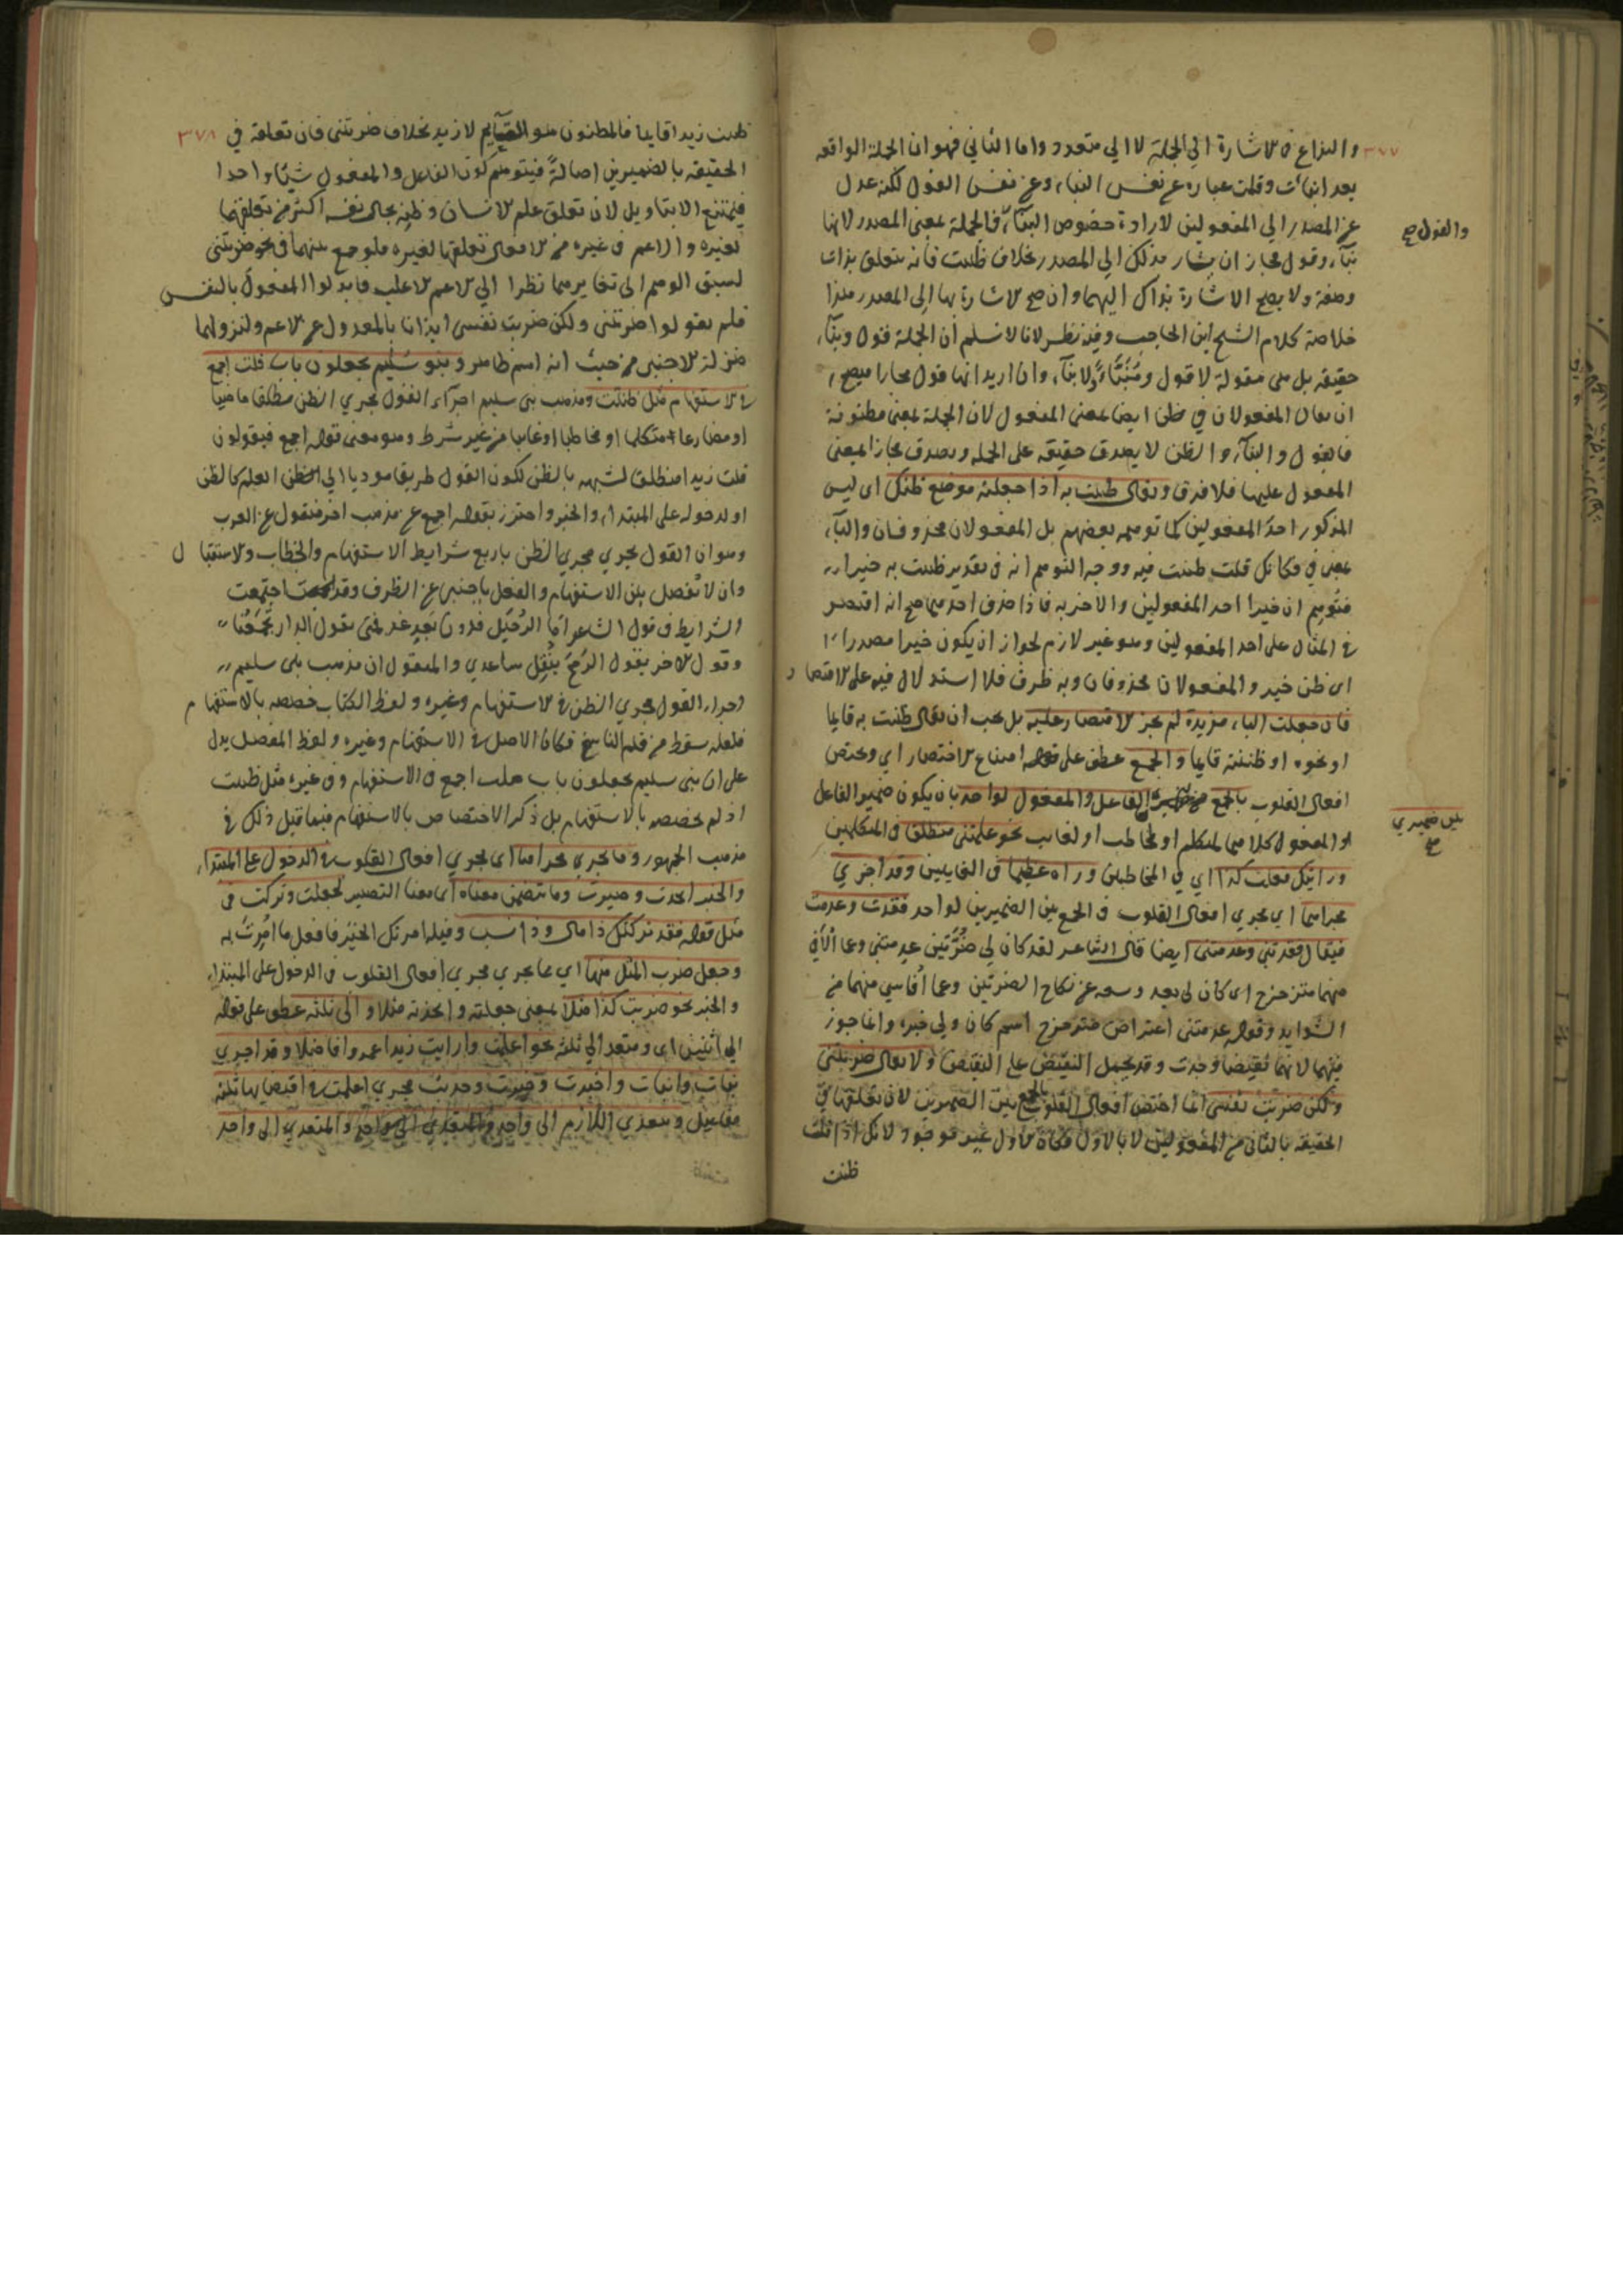 ٣٧٧
والنزاع في الاشارة الي الجملة لا الي متعدد واما الثاني فهو ان الجملة الواقعه
بعد انبأت وقلت عباره عن نفس النباء وعن نفس القول لكنه عدل
عن المصدر الي المفعولين لارادة خصوص النبآء فالجملة بمعنى المصدر لانها
والقول صح
نبآء وقول فجاز ان يشار بذلك الي المصدر بخلاف ظننت فانه يتعلق بذات
وصفة ولا يصح الاشارة بذاك اليهما وان صح الاشارة بها الى المصدر هذا
خلاصة كلام الشيخ ابن الحاجب وفيه نظر لانا لا نسلم ان الجملة قول ونبآء
حقيقه بل هى مقولة لا قول ومُنَبَّاءٌ لا نبآء وان اريد انها قول مجازا فيصح
ان يقال المفعولان في ظن ايضا بمعنى المفعول لان الجملة بمعنى مظنونة
فالقول والنبآء والظن لا يصدق حقيقه على الجمله ويصدق مجازا بمعنى
المفعول عليها فلا فرق ويقال ظننت به اذا جعلته موضع ظنك اى ليس
المذكور احد المفعولين كما توهمه بعضهم بل المفعولان محذوفان والبآء
بمعنى في فكانك قلت ظننت فيه ووجه التوهم انه في تقدير ظننت به خيرا
فتُوهم ان خيرا احد المفعولين والاخر به فاذا حذف احدهما صح انه اقتصر
في المثال على احد المفعولين وهو غير لازم لجواز ان يكون خيرا مصدرا
اى ظن خير والمفعولان محذوفان وبه ظرف فلا استدلال فيه على الاقتصار
فان جعلت الباء مزيدة لم يجز الاقتصار عليه بل يجب ان يقال ظننت به قايما
او نحوه او ظننته قايما والجمع عطف على قوله امتناع الاقتصار اي ويختص
افعال القلوب بالجمع الفاعل والمفعول لواحد بان يكون ضمير الفاعل
بين ضميري
صح
او المفعول كلاهما لمتكلم او مخاطب او لغايب نحو علمتنى منطلقا في المتكلمين
ورايتك فعلت كذا اي في المخاطبين وراه عظيما في الغايبين وقد اجري
مجراهما اي مجرى افعال القلوب في الجمع بين الضميرين لواحد فقدت وعدمت
فيقال فقدتنى وعدمتنى ايضا قال الشاعر لقد كان لي ضُرَّتين عدمتني وعما الاقي
منهما متزحزح اى كان لى بعد وسعه عن نكاح الضرتين وعما اقاسي منهما من
الشدايد وقوله عدمتنى اعتراض متزحزح اسم كان ولي خبره وانما جوز
فيهما لانهما نقيضا وجدت وقد يحمل النقيض على النقيض ولا يقال ضربتنى
ولكن ضربت نفسى انما اختص افعال القلوب بالجمع بين الضميرين لان تعلقها في
الحقيقه بالثاني من المفعولين لا بالاول فكان الاول غير موجود لانك اذا قلت
ظننت
٣٧٨
ظننت زيدا قايما فالمظنون هو القيام لا زيد بخلاف ضربتنى فان تعلقه في
الحقيقه بالضميرين اصالةً فيتوهم كون الفاعل والمفعول شيئا واحدا
فيمتنع الا بتاويل لان تعلق علم الانسان وظنه بحال نفسه اكثر من تعلقهما
لغيره والاعم في غيره من الافعال تعلقها لغيره فلو جمع بينهما في نحو ضربتنى
لسبق الوهم الى تغايرهما نظرا الي الاعم الاغلب فابدلوا المفعول بالنفس
فلم يقولوا ضربتنى ولكن ضربت نفسى ايذانا بالعدول عن الاعم ولنزولها
منزلة الاجنبى من حيث انه اسم ظاهر وبنو سُليم يجعلون باب قلت اجمع
في الاستفهام مثل ظننت ومذهب بنى سليم اجرآء القول مجري الظن مطلقا ماضيا
او مضارعا متكلما او مخاطبا او غايبا من غير شرط وهو معنى قوله اجمع فيقولون
قلت زيدا منطلقا لشبهه بالظن لكون القول طريقا موديا الي الظن العلم كالظن
او لدخوله على المبتدا والخبر واحترز بقوله اجمع عن مذهب اخر منقول عن العرب
وهو ان القول يجري مجري الظن باربع شرايط الاستفهام والخطاب والاستقبال
وان لا يُفصل بين الاستفهام والفعل باجنبى غير الظرف وقد اجتمعت
الشرايط في قول الشاعر اما الرحيل فدون بعد غد فمتى تقول الدار تجمعنا
وقول الاخر بقول الرمح يثقل ساعدي والمنقول ان مذهب بنى سليم
اجراء القول مجري الظن في الاستفهام وغيره ولفظ الكتاب خصصه بالاستفهام
فلعله سقط من قلم الناسخ فكان الاصل في الاستفهام وغيره ولفظ المفصل يدل
على ان بنى سليم يجعلون باب قلت اجمع في الاستفهام وفي غيره مثل ظننت
اذ لم يخصصه بالاستفهام بل ذكر الاختصاص بالاستفهام فيما قبل ذلك في
مذهب الجمهور وما يجري مجراها اى مجري افعال القلوب في الدخول على المبتداء
والخبر اتخذت وصيرت وما تضمن معناه اى معنا التصيير كجعلت وتركت في
مثل قوله فقد تركتك ذا مال وذا نسب وقبله امرتك الخير فافعل ما امرت به
وجعل ضرب المثل منها اي مما يجري مجري افعال القلوب في الدخول على المبتداء
والخبر نحو ضربت كذا مثلا بمعنى جعلته واتخذته مثلا والى ثلثه عطف على قوله
الي اثنين اى ومتعد الي ثلثه نحو اعلمت واريت زيدا عمروا فاضلا وقد اجرى
نبأت وانبأت واخبرت وخبرت وحدثت مجرى اعلمت في اقتضايها ثلثه
مفاعيل ويتعدي اللازم الى واحد والمتعدي الى واحد